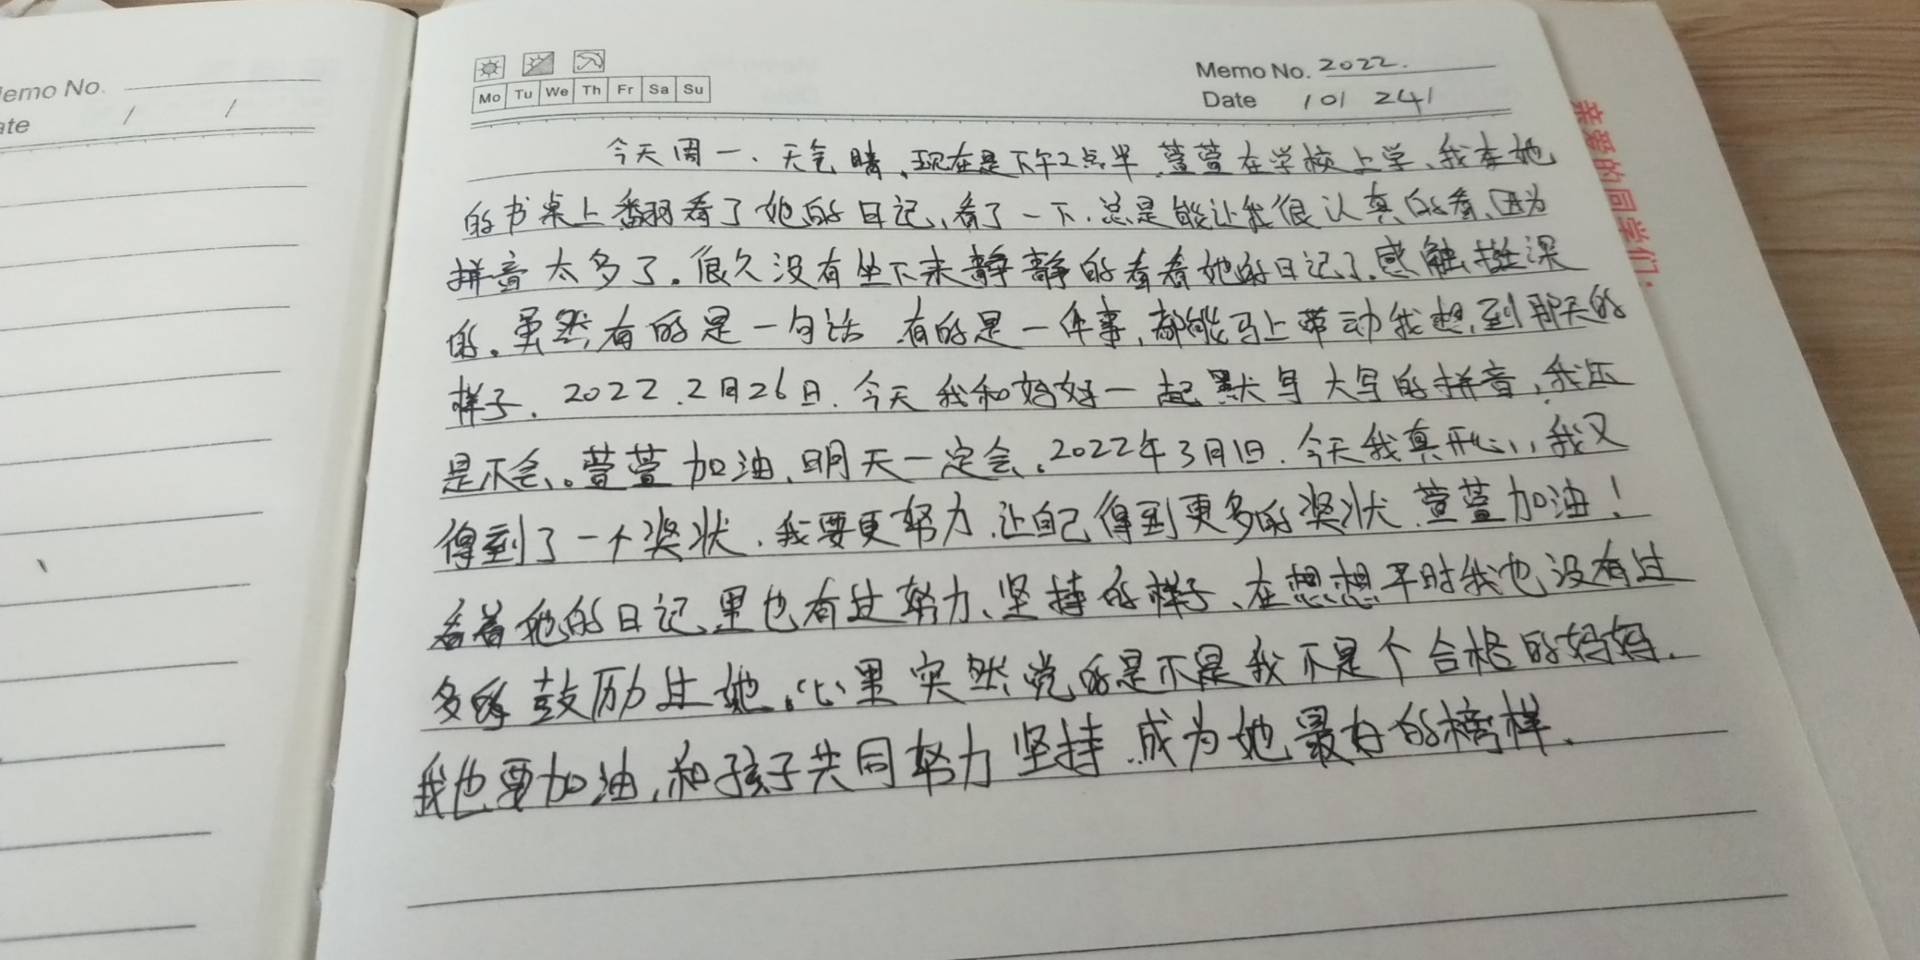 emo No.
ate / /
Mo Tu We Th Fr Sa Su
Memo No. 2022.
Date 10/ 24/
今天周一、天气晴,现在是下午2点半.萱萱在学校上学、我在她
的书桌上翻看了她的日记,看了一下.总是能让我很认真的看、因为
拼音太多了。很久没有坐下来静静的看看她的日记了.感触挺深
的。虽然有的是一句话 有的是一件事,都能马上带动我想到那天的
样子.2022.2月26日.今天我和妈妈一起默写大写的拼音,我还
是不会、。萱萱加油、明天一定会.2022年3月1日.今天我真开心,我又
得到了一个奖状.我要更努力.让自己得到更多的奖状.萱萱加油!
看着她的日记里也有过努力、坚持的样子、在想想平时我也没有过
多的鼓励过她。心里突然觉的是不是我不是个合格的妈妈.
我也要加油,和孩子共同努力坚持.成为她最好的榜样.
亲爱的同学们: